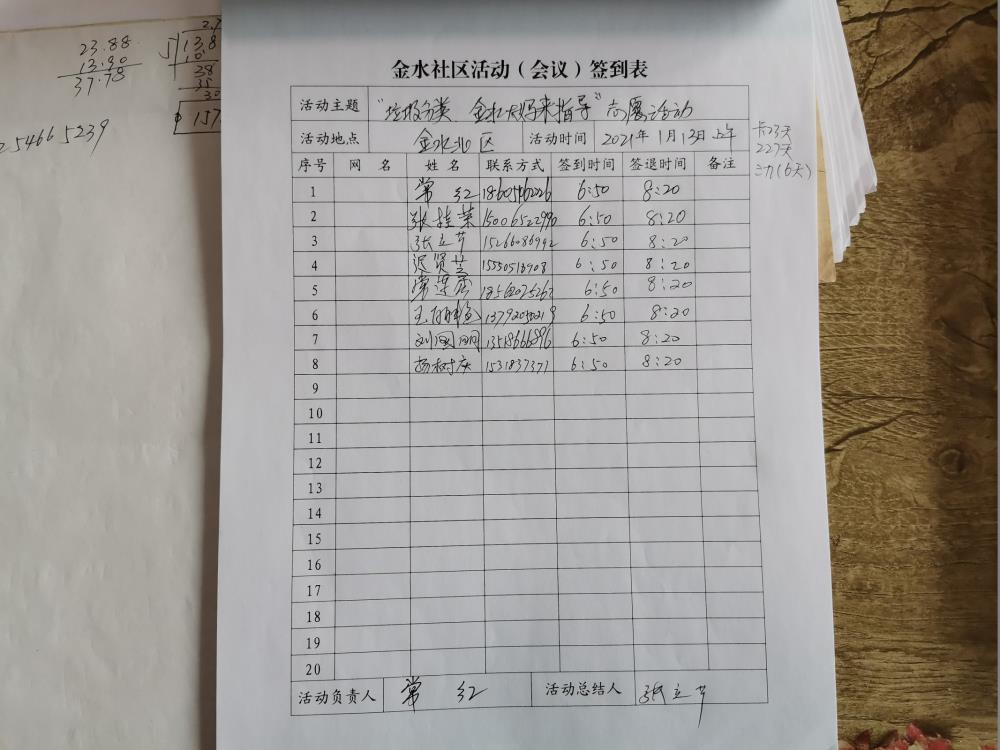 23.88
13.90
37.78
254665239
金水社区活动（会议）签到表
活动主题 "垃圾分类 金水大妈来指导"志愿活动
活动地点 金水北区 活动时间 2021年1月13日上午
序号 网 名 姓 名 联系方式 签到时间 签退时间 备注
1 常 红 6:50 8:20
2 张桂荣 15006522990 6:50 8:20
3 张立芹 15266086942 6:50 8:20
4 迟贤芝 15550513908 6:50 8:20
5 6:50 8:20
6 6:50 8:20
7 刘国丽 13518666896 6:50 8:20
8 杨树庆 1531837371 6:50 8:20
9
10
11
12
13
14
15
16
17
18
19
20
活动负责人 常 红 活动总结人 张立芹
卡23天
227天